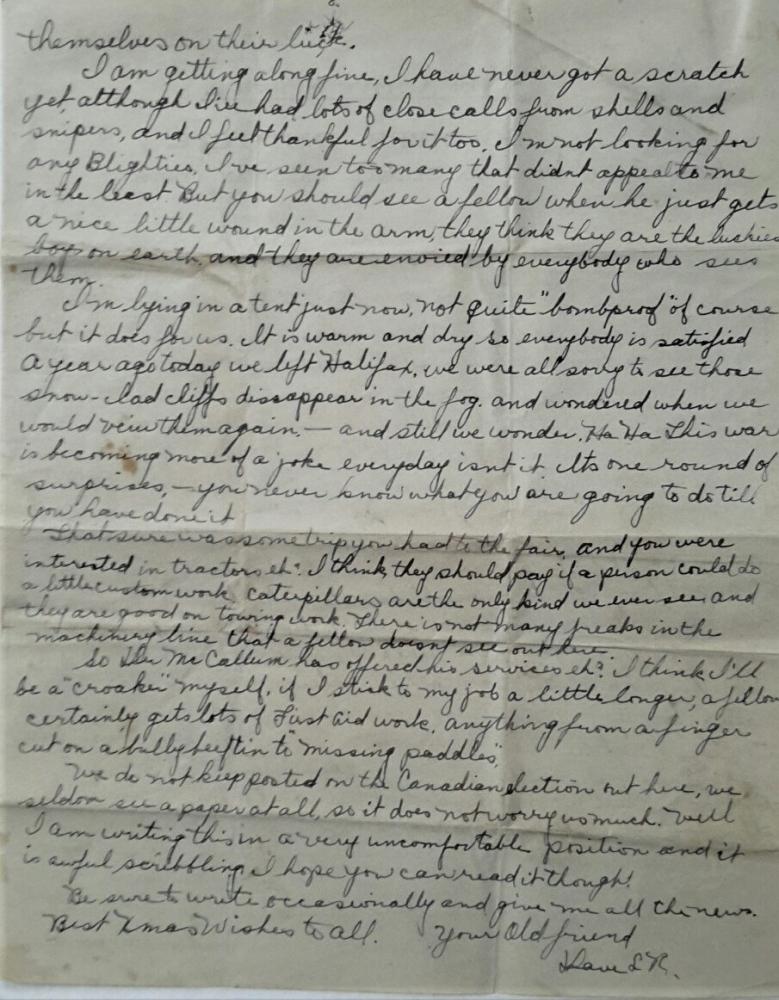 themselves on their luck.
I am getting along fine, I have never got a scratch
yet, although I've had lots of close calls from shells and
snipers, and I feel thankful for it too. I'm not looking for
any Blighties, I've seen too many that didnt appeal to me
in the least. But you should see a fellow when he just gets
a nice little wound in the arm, they think they are the luckies
boys on earth, and they are envied by everybody who sees
them.
I'm lying in a tent just now, not quite "bombproof" of course
but it does for us. It is warm and dry so everybody is satisfied
A year ago today we left Halifax, we were all sorry to see those
snow-clad cliffs dissappear in the fog. and wondered when we
would veiw them again. — and still we wonder. Ha Ha This war
is becoming more of a joke everyday isnt it. Its one round of
surprises, — you never know what you are going to do till
you have done it
That sure was some trip you had to the fair, and you were
interested in tractors eh? I think, they should pay if a person could do
a little custom work. Caterpillars are the only kind we ever see and
they are good on towing work. There is not many freaks in the
machinery line that a fellow doesnt see out here.
So McCallum has offered his services eh? I think I'll
be a "croaker" myself, if I stick to my job a little longer, a fellow
certainly gets lots of First Aid work, anything from a finger
cut on a bully beef tin to "missing paddles".
We do not keep posted on the Canadian election out here, we
seldom see a paper at all, so it does not worry us much. Well
I am writing this in a very uncomfortable position and it
is awful scribbling I hope you can read it though!
Be sure to write occasionally and give me all the news.
Best Xmas Wishes to all. Your Old friend
Dave